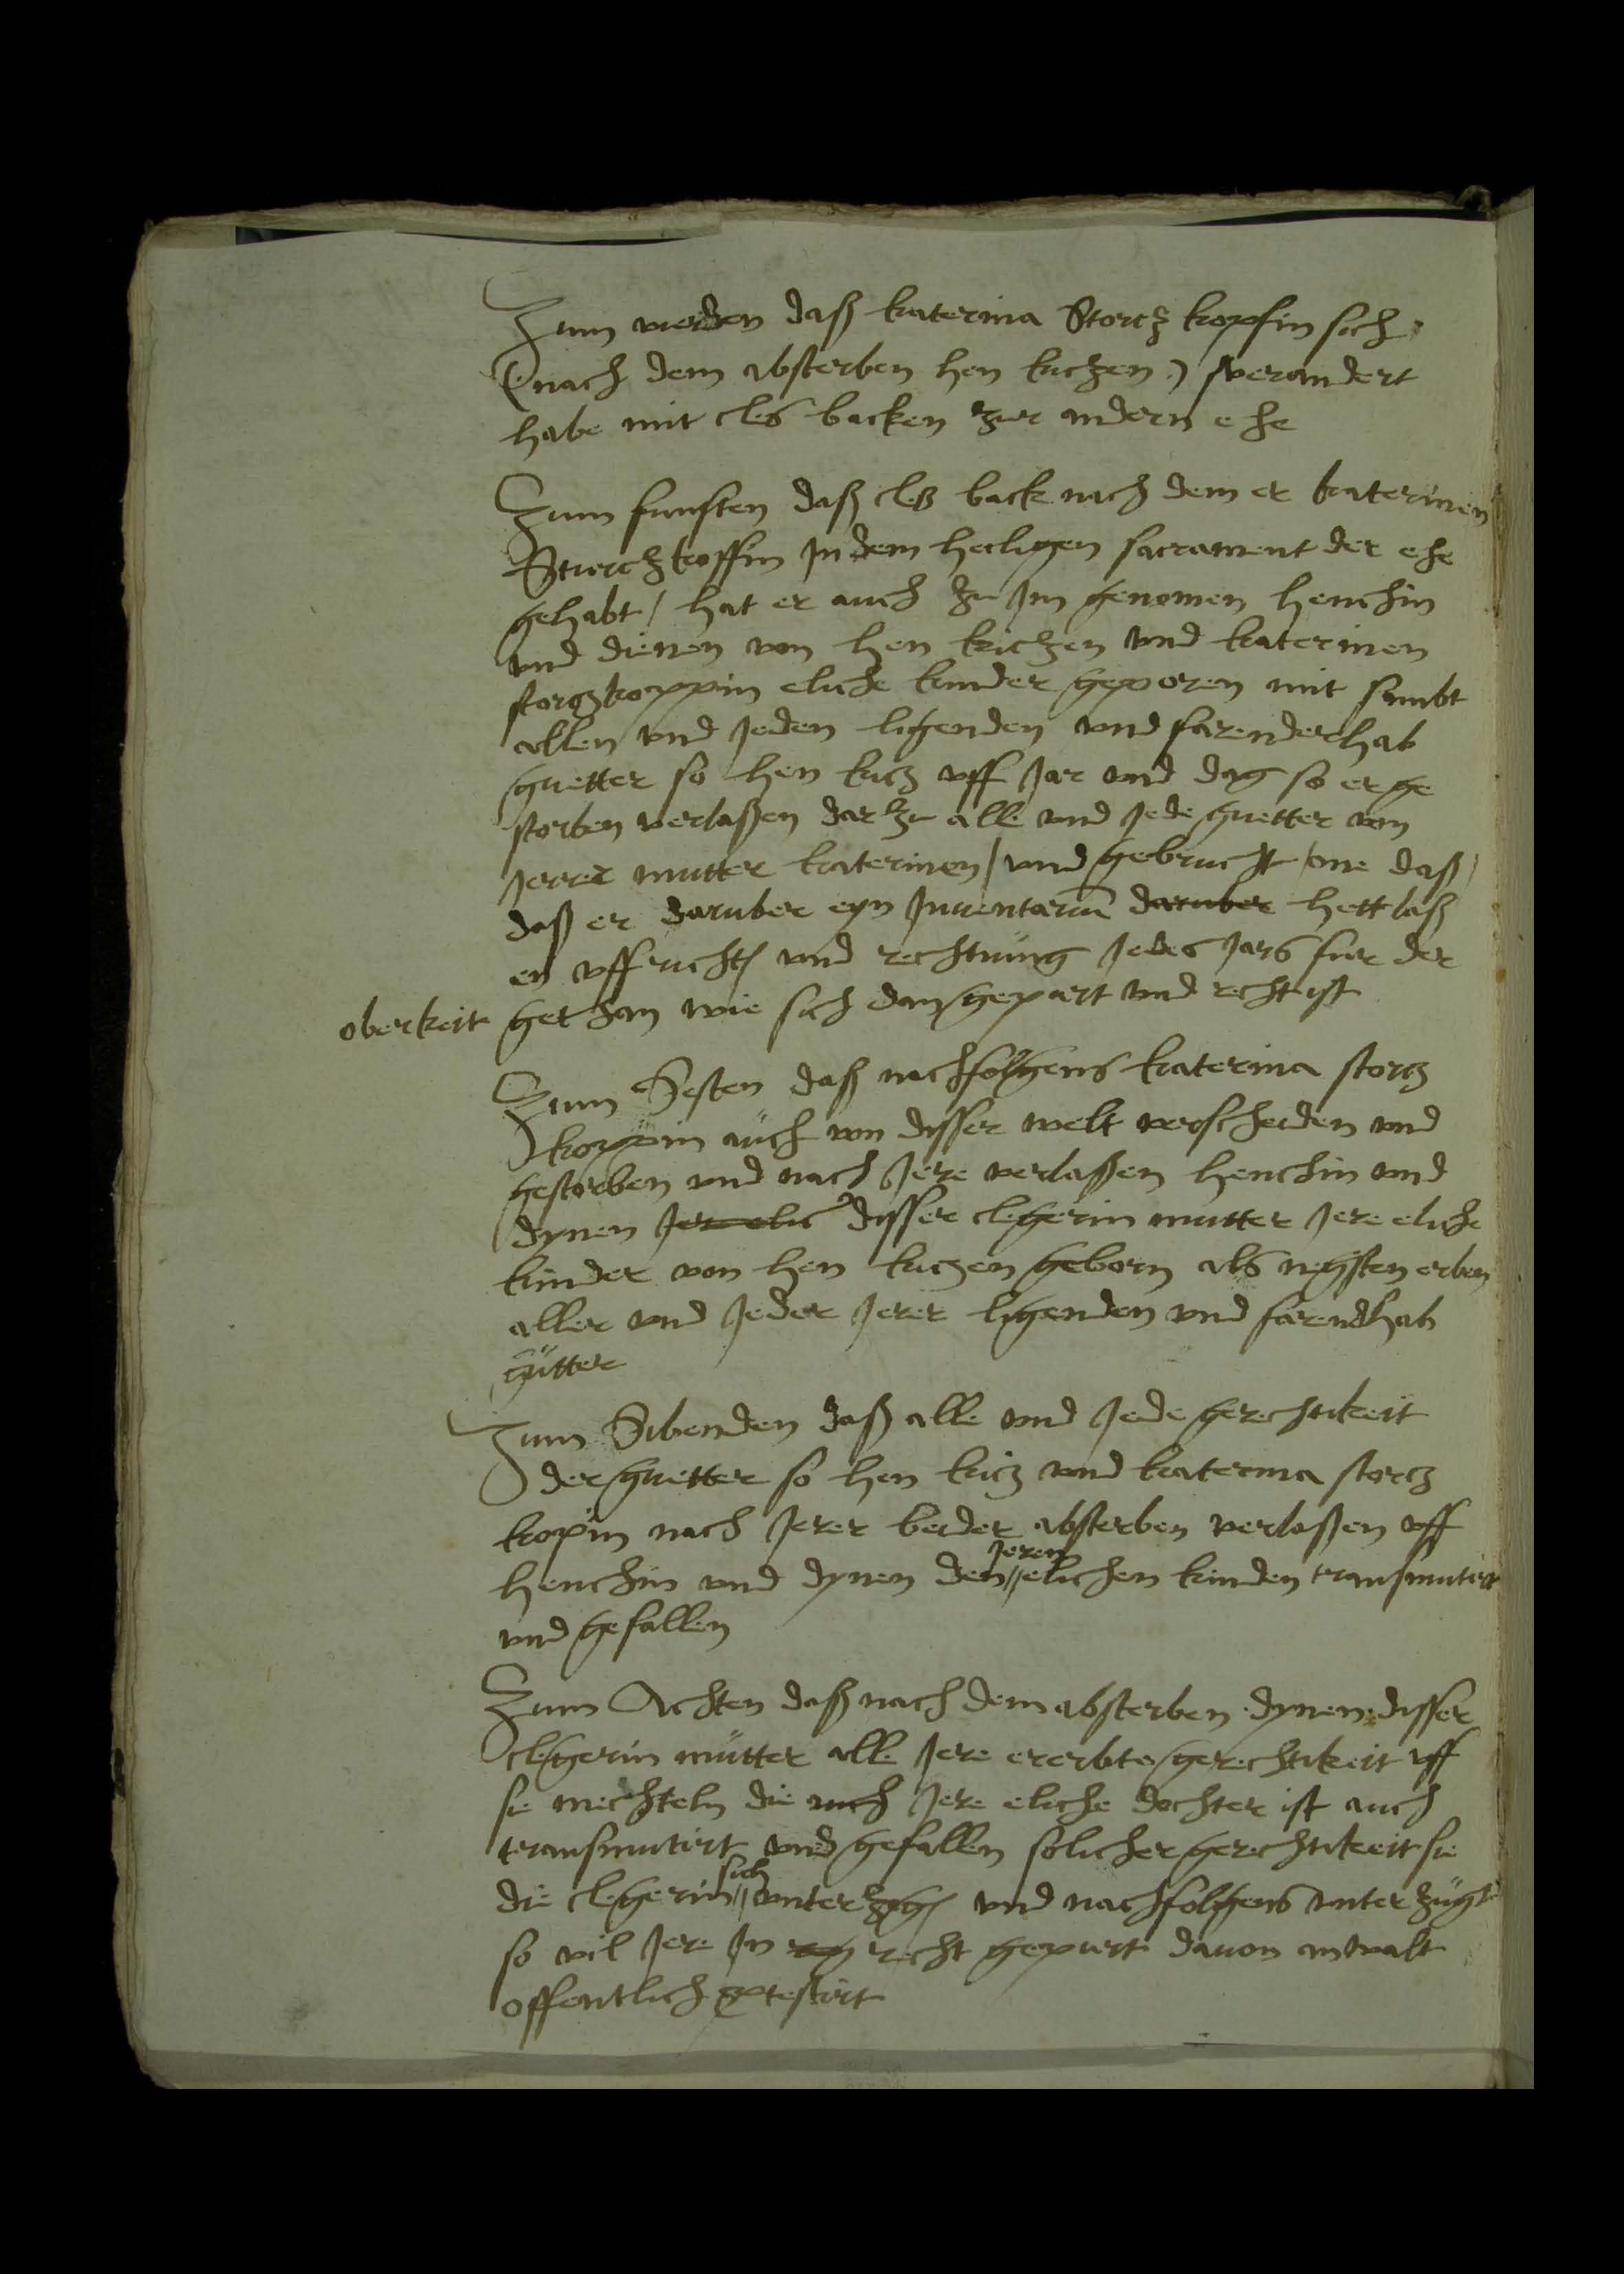 Zum vierden daß katerina Storcz kopfin sich
(nach dem absterben hen kiczen) verandert
habe mit cles backen zur andern ehe
Zum funfften daß cleß back nach dem er katerinen
Sturczkoffin In dem heiligen sacrament der ehe
gehabt / hat er auch zu Im genomen henchin
vnd dienen von hen kiczen vnd katerinen
storczkoppin eliche kinder geporen mit sambt
allen vnd Jeden ligenden vnd farender hab
guetter so hen kicz vff Jar vnd dag so er ge
storben verlaßen dar zu alle vnd Jede guetter von
Jerrer mutter katerinen / vnd gebrucht one daß /
daß er daruber eyn Inuentariu daruber hett laß
en vffricht vnd rechnung Jedes Jars fur der
oberkeit gethan wie sich dan gepurt vnd recht ist
Zum Sesten daß nachfolgens katerina storcz
koppin auch von disser welt verscheiden vnd
gestorben vnd nach Jere verlaßen henchin vnd
dynen Jer elic disser clegerin mutter Jere eliche
kinder von hen kiczen geborn als negsten erben
aller vnd Jeder Jerer ligenden vnd farendhab
gütter
Zum Sibenden daß alle vnd Jede gerechtikeit
der guetter so hen kicz vnd katerina storcz
kopin nach Jerer beider absterben verlaßen vff
henchin vnd dynen den Jeren elichen kinden transmutirt
vnd gefallen
Zum Achten daß nach dem absterben dynen disser
clegerin mütter alle Jere ererbte gerechtikeit vff
sie mechteln die auch Jere eliche dochter ist auch
transmutirt vnd gefallen solicher gerechtikeit sie
die clegerin sich vnterzogen vnd nachfolgens vnterzügt
so vil Jere In recht gepurt dauon anwalt
offentlich protestirt